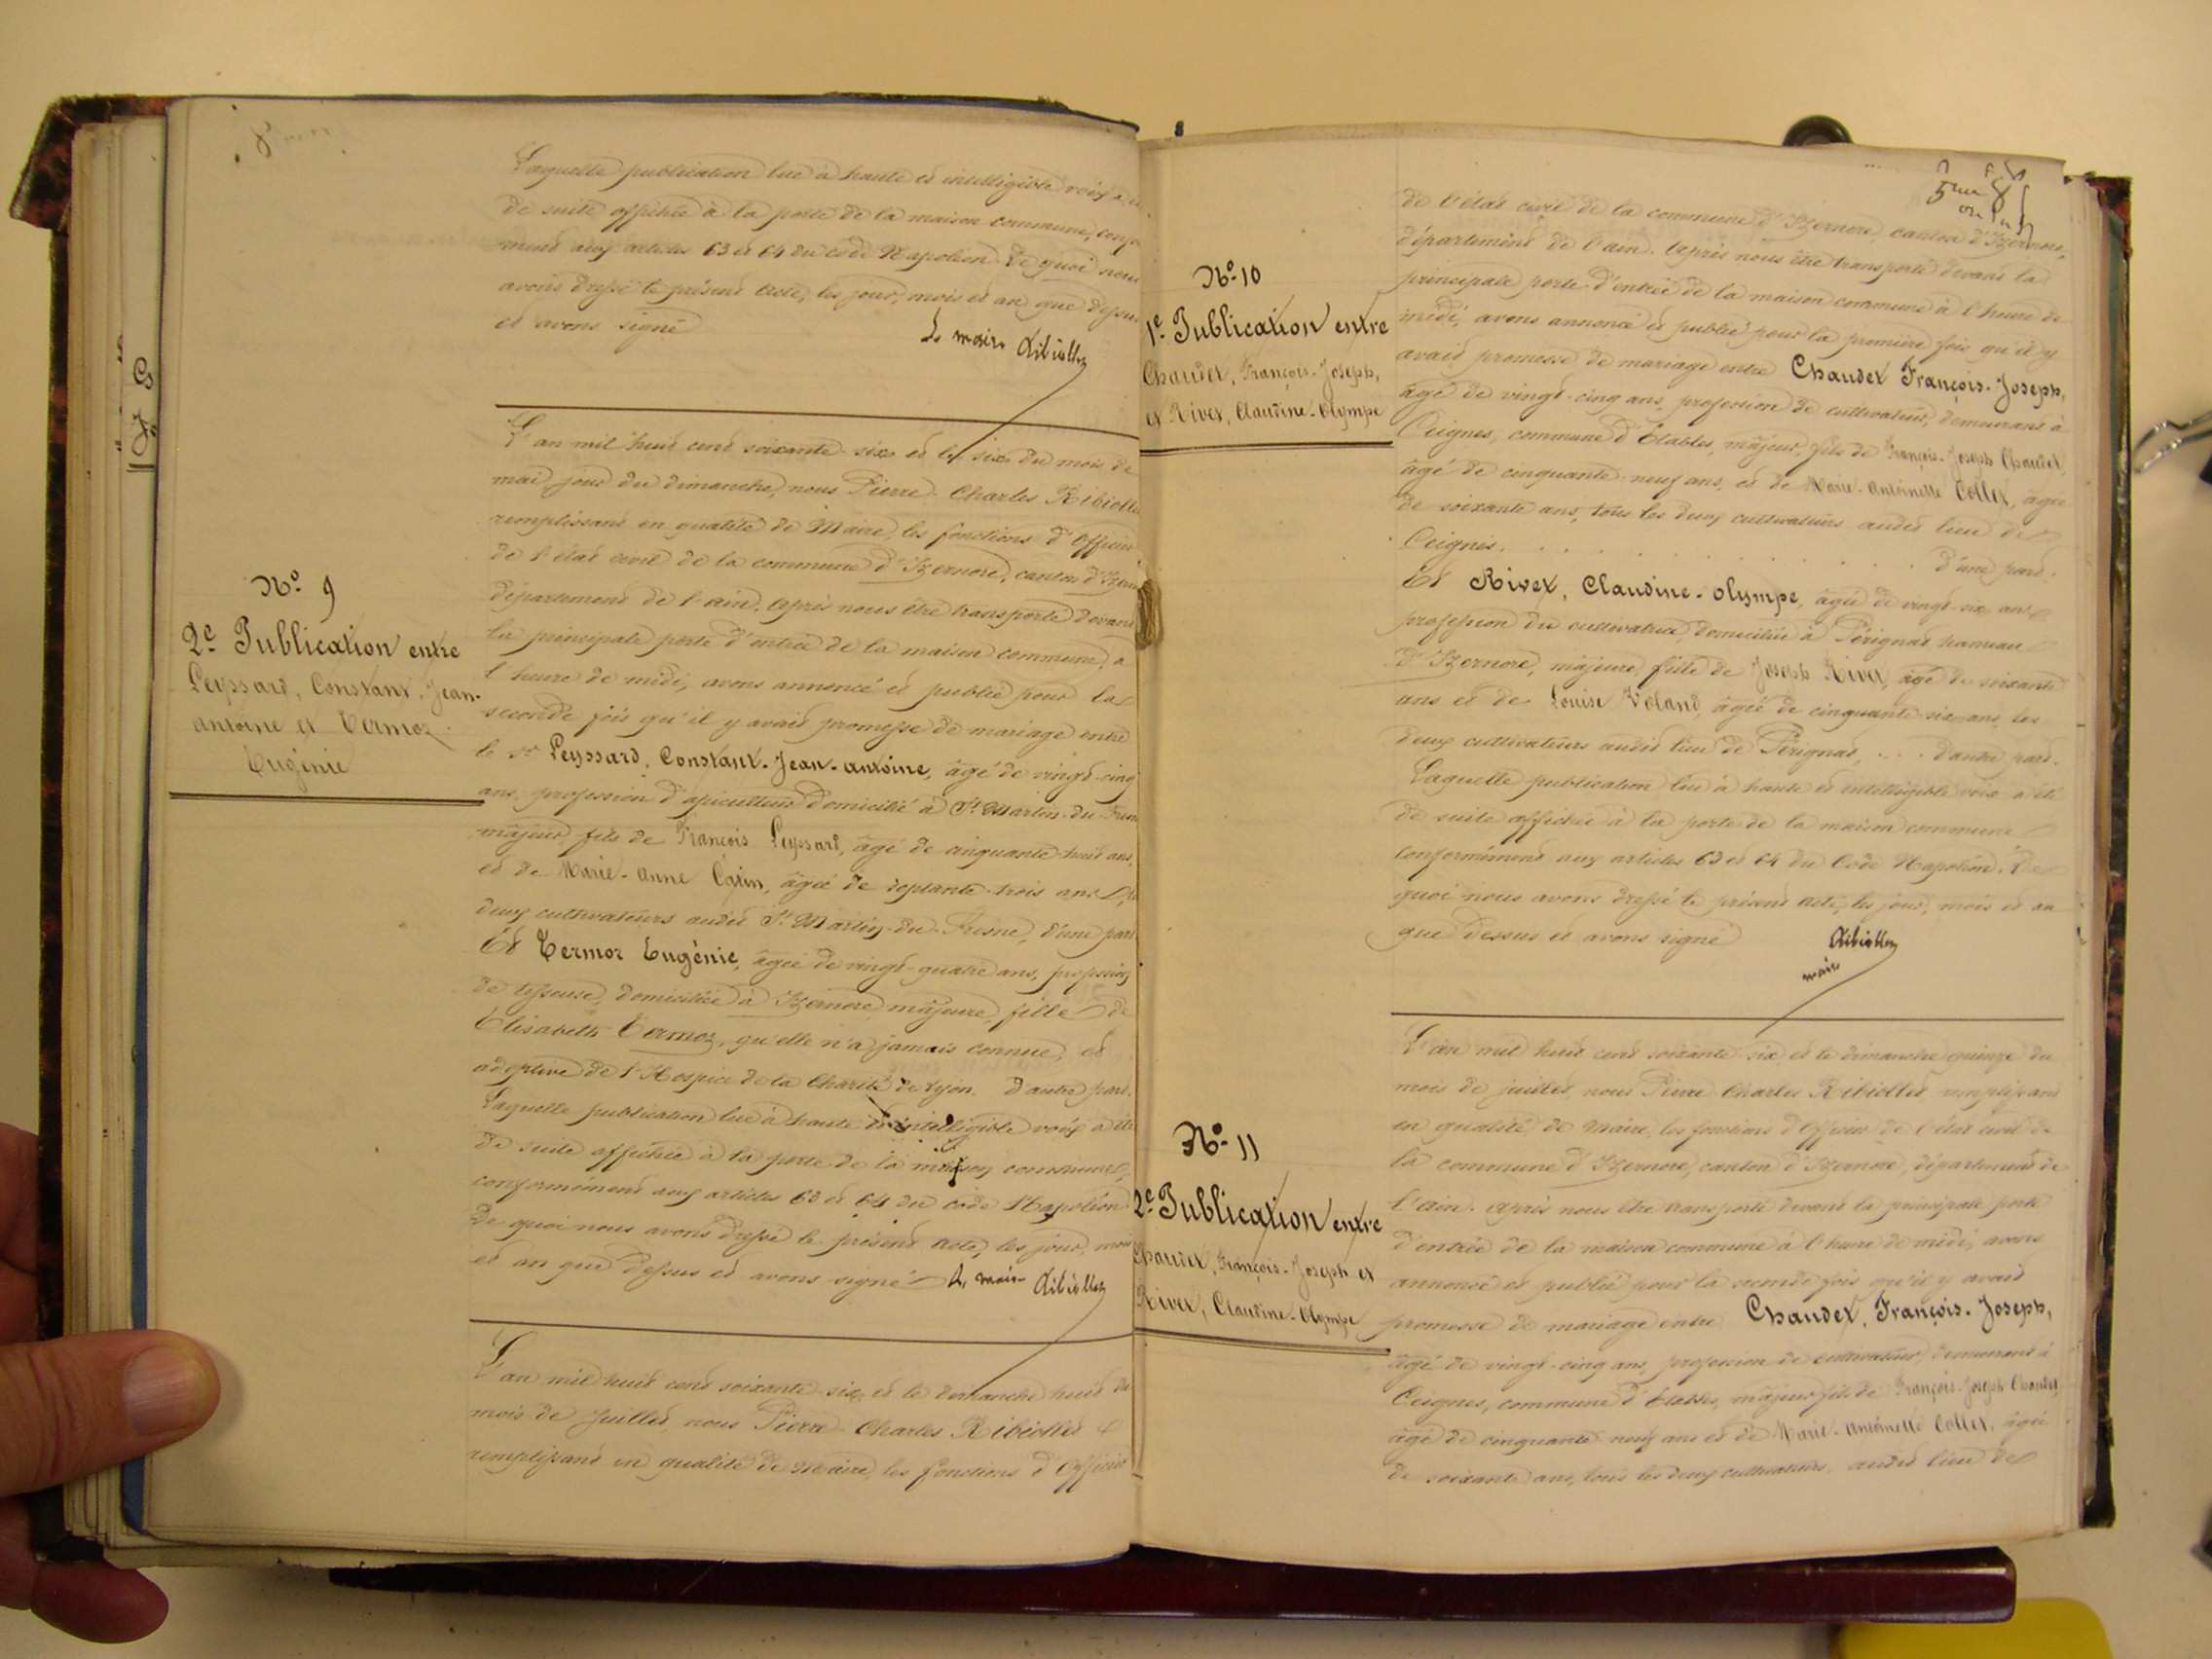 Laquelle publication lue à haute et intelligible voix a été
de suite affichée à la porte de la maison commune,
aux articles 63 et 64 du code Napoléon. De quoi nous
avons dressé le présent acte, les jour, mois et an que dessus
et avons signé
Le maire Ribiollet
N° 9
2e Publication entre
Peyssard, Constant-Jean-
Antoine et Vermoz
Eugénie
L'an mil huit cent soixante-six et le six du mois de
mai jour du dimanche, nous Pierre-Charles Ribiollet
remplissant en qualité de Maire, les fonctions d'Officier
de l'état civil de la commune d'Izernore, canton d'Izernore
département de l'ain. Après nous être transporté devant
la principale porte d'entrée de la maison commune, à
l'heure de midi, avons annoncé et publié pour la
seconde fois qu'il y avait promesse de mariage entre
le sr Peyssard, Constant-Jean-Antoine, âgé de vingt-cinq
ans, profession d'apiculteur domicilié à St Martin-du-Fresne
majeur, fils de François Peyssard, âgé de cinquante-huit ans,
et de Marie-Anne âgée de septante-trois ans
deux cultivateurs audit St Martin-du-Fresne, d'une part
Et Vermoz Eugénie, âgée de vingt-quatre ans, profession
de tisseuse, domiciliée à Izernore, majeure, fille de
Elisabeth Vermoz, qu'elle n'a jamais connue, et
adoptive de l'Hospice de la Charité de Lyon. D'autre part.
Laquelle publication lue à haute et intelligible voix a été
de suite affichée à la porte de la maison commune,
conformément aux articles 63 et 64 du code Napoléon
De quoi nous avons dressé le présent acte, les jour, mois
et an que dessus et avons signé Le maire Ribiollet
L'an mil huit cent soixante-six et le dimanche huit du
mois de Juillet, nous Pierre-Charles Ribiollet
remplissant en qualité de Maire, les fonctions d'Officier
N° 10
1e Publication entre
Chaudet, François-Joseph,
et Rivet, Claudine-Olympe
de l'état civil de la commune d'Izernore, canton d'Izernore,
département de l'ain. Après nous être transporté devant la
principale porte d'entrée de la maison commune à l'heure de
midi, avons annoncé et publié pour la première fois qu'il y
avait promesse de mariage entre Chaudet François-Joseph,
âgé de vingt-cinq ans, profession de cultivateur, demeurant à
Ceignes, commune d'Étables, majeur, fils de François-Joseph Chaudet,
âgé de cinquante-neuf ans, et de Marie-Antoinette Collet, âgée
de soixante ans, tous les deux cultivateurs audit lieu de
Ceignes. . . . . . . . . . d'une part.
Et Rivet, Claudine-Olympe, âgée de vingt-six ans
profession de cultivatrice domiciliée à Pérignat hameau
d'Izernore, majeure, fille de Joseph Rivet, âgé de soixante
ans et de Louise Voland, âgée de cinquante-six ans, les
deux cultivateurs audit lieu de Pérignat, . . . d'autre part.
Laquelle publication lue à haute et intelligible voix a été
de suite affichée à la porte de la maison commune
conformément aux articles 63 et 64 du Code Napoléon. De
quoi nous avons dressé le présent acte, les jour, mois et an
que dessus et avons signé Ribiollet
maire
N° 11
2e Publication entre
Chaudet, François-Joseph et
Rivet, Claudine-Olympe
L'an mil huit cent soixante-six et le dimanche quinze du
mois de juillet, nous Pierre Charles Ribiollet remplissant
en qualité de Maire, les fonctions d'Officier de l'état civil de
la commune d'Izernore, canton d'Izernore, département de
l'ain. Après nous être transporté devant la principale porte
d'entrée de la maison commune à l'heure de midi, avons
annoncé et publié pour la seconde fois qu'il y avait
promesse de mariage entre Chaudet, François-Joseph,
âgé de vingt-cinq ans, profession de cultivateur, demeurant à
Ceignes, commune d'Étables, majeur fils de François-Joseph Chaudet
âgé de cinquante neuf ans et de Marie-Antoinette Collet, âgée
de soixante ans, tous les deux cultivateurs, audit lieu de